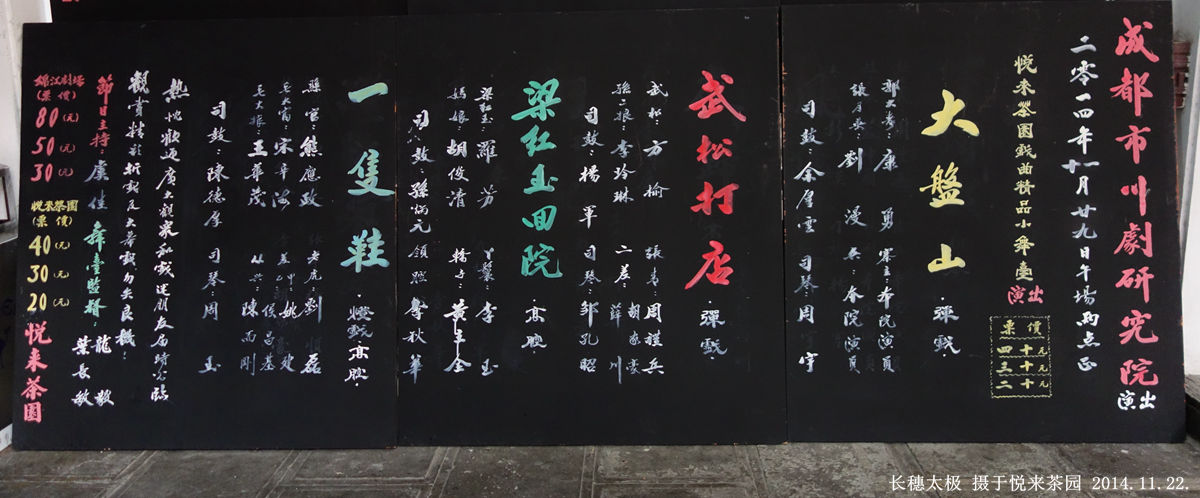 成都市川劇研究院
演出
二零一四年十一月廿九日午場兩点正
悦来茶園戯曲精品小舞臺
演出
票價
四十元
三十元
二十元
大盤山·弹戯·
康勇
寨主·本院演員
劉漫
兵·本院演員
司鼓·余屋雲
司琴·周宇
武松打店·弹戯·
武松·方榆
張青·周植兵
孫二娘·李玲琳
二差·
胡家豪
薛川
司鼓·楊軍
司琴·鄒孔昭
梁红玉回院·高腔·
梁红玉·羅芳
丫鬟·李玉
媽娘·胡俊清
轎夫·黄玉全
司鼓·孫炳元
領腔·魯秋華
一隻鞋·燈戯·高腔·
縣官·熊應政
老虎·劉磊
毛大富·宋辛海
姚建
毛大娘·王華茂
侯昌基
陳雨剛
司鼓·陳德厚
司琴·周玉
热忱歡迎廣大觀衆和戯迷朋友届時光臨
觀賞精彩折戯及大幕戯勿失良機！
節目主持：虞佳
舞臺監督：
龍敏
葉長敏
錦江劇场
(票價)
80(元)
50(元)
30(元)
悦来茶園
(票價)
40(元)
30(元)
20(元)
悦来茶園
长穗太极 摄于悦来茶园 2014.11.22.